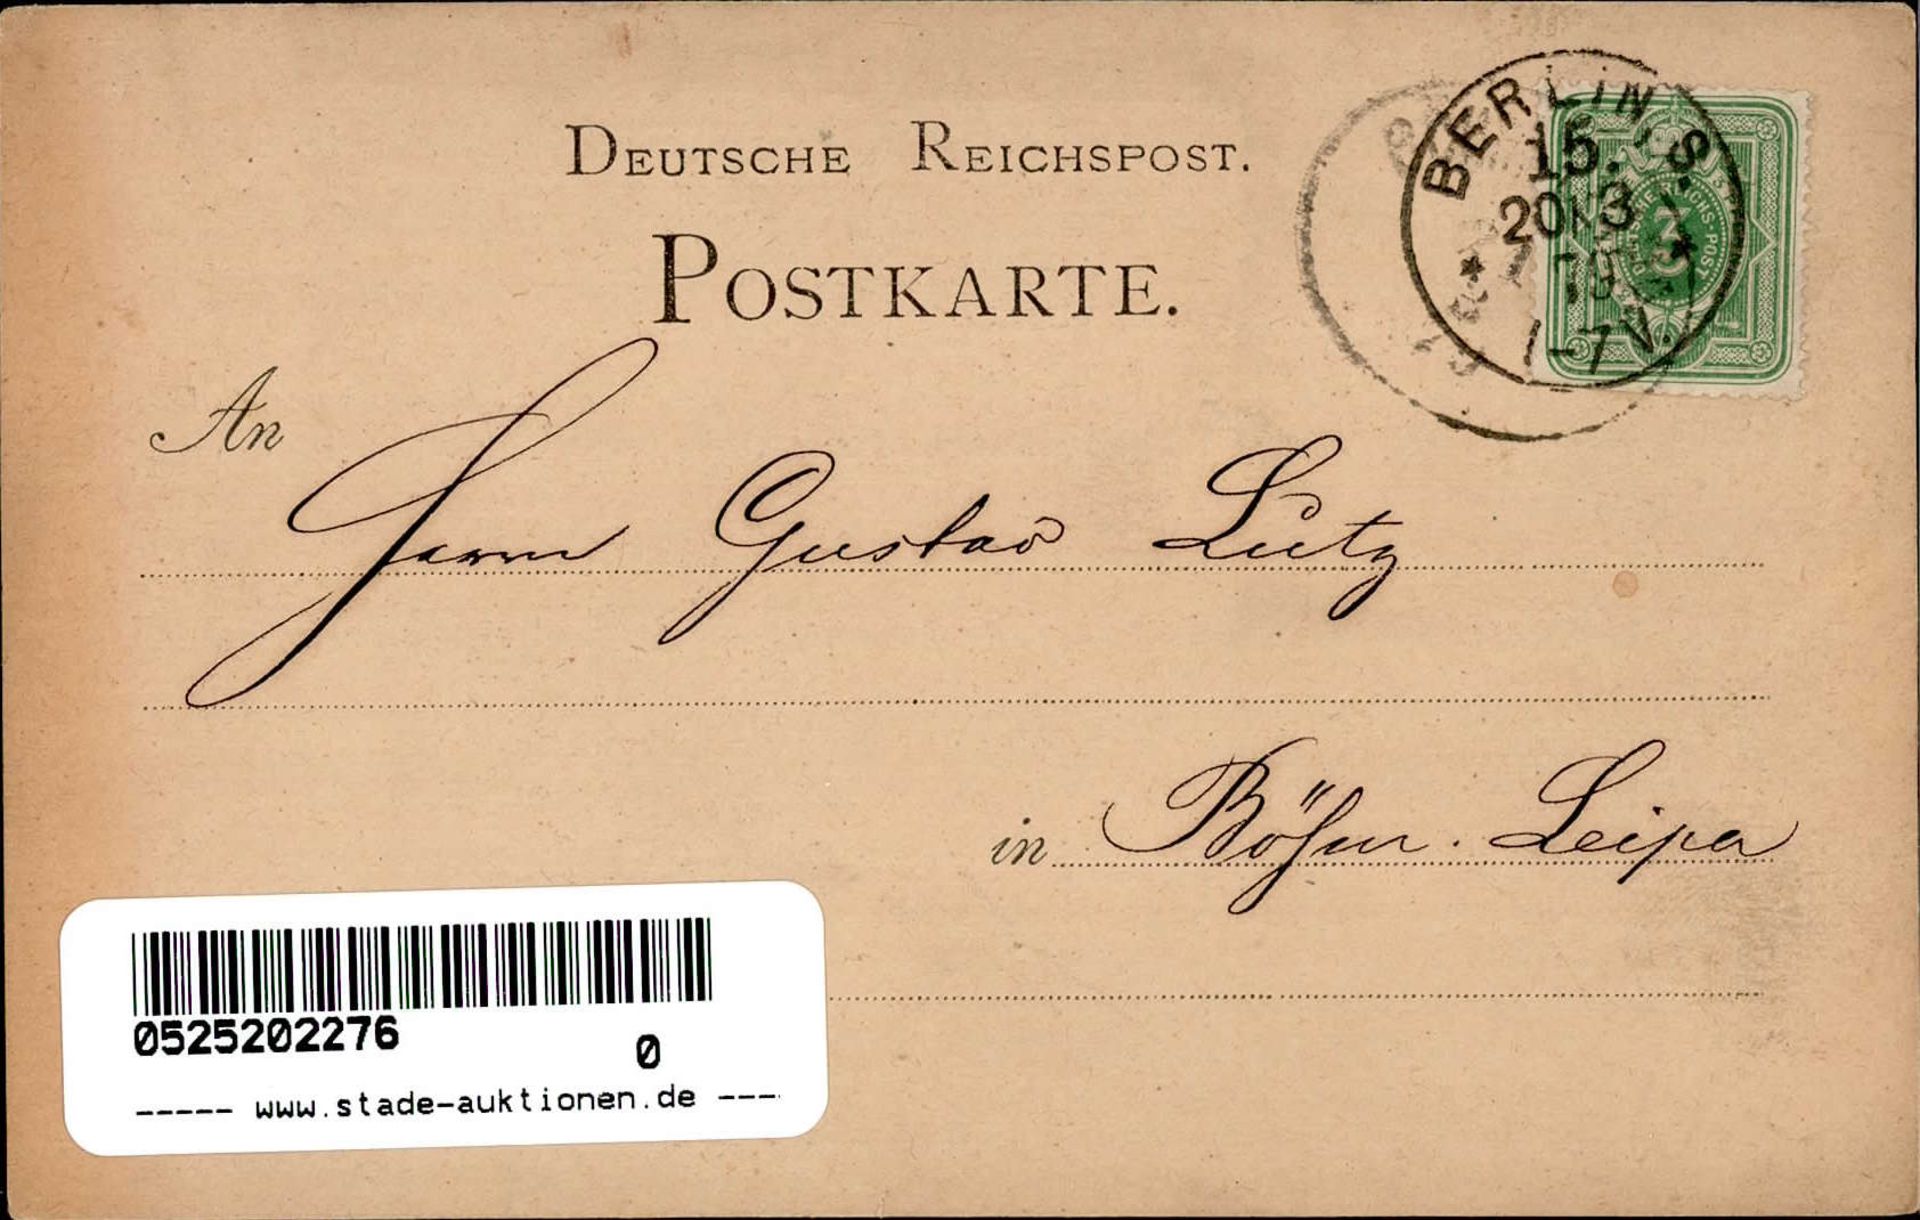 DEUTSCHE REICHSPOST.
POSTKARTE.
BERLIN, S.
15.
20 3
79
1-7 V.
DEUTSCHE REICHS-POST
3
An
Herrn Gustav Lutz
in Böhm. Leipa
0525202276
0
----- www.stade-auktionen.de ---